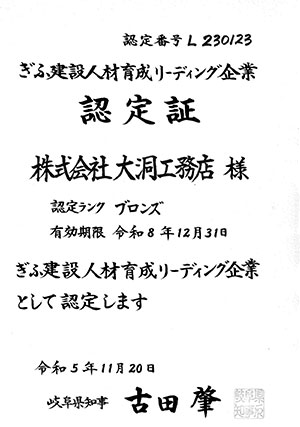 認定番号 L 230123
ぎふ建設人材育成リーディング企業
認定証
株式会社大洞工務店 様
認定ランク ブロンズ
有効期限 令和8年12月31日
ぎふ建設人材育成リーディング企業
として認定します
令和5年11月20日
岐阜県知事 古田 肇